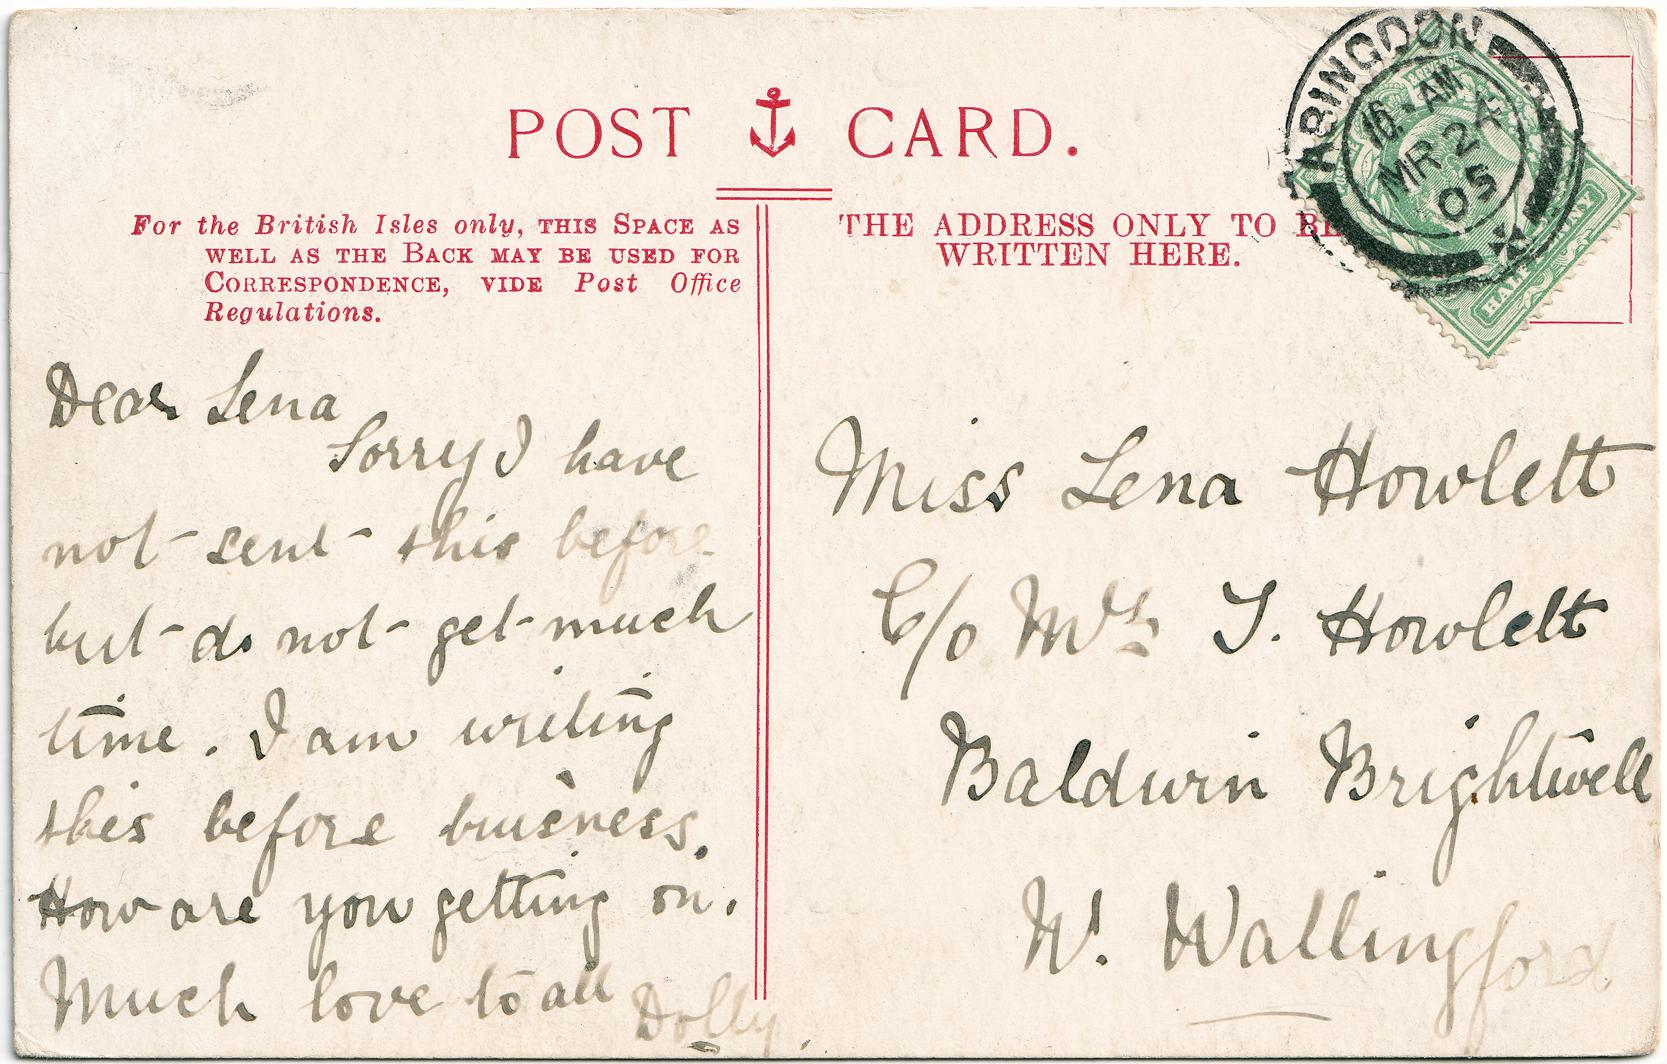 POST CARD.
For the British Isles only, THIS SPACE AS
WELL AS THE BACK MAY BE USED FOR
CORRESPONDENCE, VIDE Post Office
Regulations.
THE ADDRESS ONLY TO BE
WRITTEN HERE.
ABINGDON
AM
MR 24
05
HALFPENNY
Dear Lena
Sorry I have
not sent this before
but do not get much
time. I am writing
this before buisness.
How are you getting on.
Much love to all
Dolly.
Miss Lena Howlett
C/o Mrs Howlett
Baldwin Brightwell
Wallingford